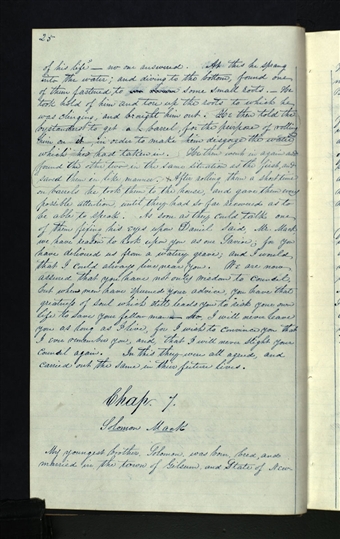 25
of his life" — no one answered. At this he sprang
into the water; and diving to the bottom, found one
of them fastened to some small roots. — He
took hold of him and tore up the roots to which he
was clinging, and brought him out. He then told the
bystanders to get a barrel, for the purpose of rolling
him on it, in order to make him disgorge the water
which he had taken in. He then went in again and
found the other two in the same situation as the first, and
saved them in like manner. After rolling them a short time
on barrels he took them to the house, and gave them every
possible attention, until they had so far recovered as to
be able to speak. As soon as they could talk one
of them fixing his eyes upon Daniel said, Mr. Mack
we have reason to look upon you as our Savior, for you
have delivered us from a watery grave; and I would,
that I could always live near you. We are now
assured that you have not only wisdom to counsel;
but when men have spurned your advice, you have that
greatness of soul which still leads you to risk your own
life to save your fellow man. — No, I will never leave
you as long as I live, for I wish to convince you that
I ever remember you, and that I will never slight your
counsel again. In this they were all agreed, and
carried out the same in their future lives.
Chap. 7.
Solomon Mack
My youngest brother, Solomon, was born, bred, and
married in the town of Gilsum, and State of New